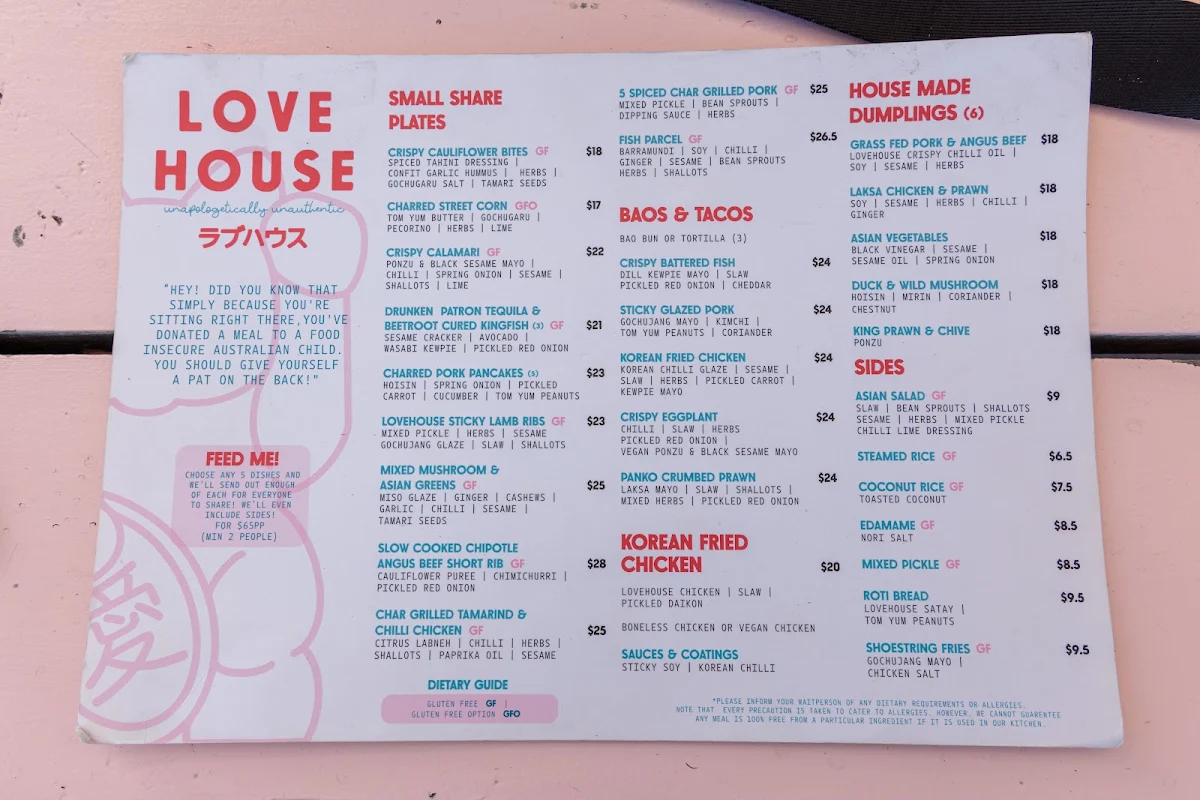 LOVE
HOUSE
unapologetically unauthentic
ラブハウス
"HEY! DID YOU KNOW THAT
SIMPLY BECAUSE YOU'RE
SITTING RIGHT THERE,YOU'VE
DONATED A MEAL TO A FOOD
INSECURE AUSTRALIAN CHILD.
YOU SHOULD GIVE YOURSELF
A PAT ON THE BACK!"
FEED ME!
CHOOSE ANY 5 DISHES AND
WE'LL SEND OUT ENOUGH
OF EACH FOR EVERYONE
TO SHARE! WE'LL EVEN
INCLUDE SIDES!
FOR $65PP
(MIN 2 PEOPLE)
愛
SMALL SHARE
PLATES
CRISPY CAULIFLOWER BITES GF $18
SPICED TAHINI DRESSING |
CONFIT GARLIC HUMMUS | HERBS |
GOCHUGARU SALT | TAMARI SEEDS
CHARRED STREET CORN GFO $17
TOM YUM BUTTER | GOCHUGARU |
PECORINO | HERBS | LIME
CRISPY CALAMARI GF $22
PONZU & BLACK SESAME MAYO |
CHILLI | SPRING ONION | SESAME |
SHALLOTS | LIME
DRUNKEN PATRON TEQUILA &
BEETROOT CURED KINGFISH (3) GF $21
SESAME CRACKER | AVOCADO |
WASABI KEWPIE | PICKLED RED ONION
CHARRED PORK PANCAKES (5) $23
HOISIN | SPRING ONION | PICKLED
CARROT | CUCUMBER | TOM YUM PEANUTS
LOVEHOUSE STICKY LAMB RIBS GF $23
MIXED PICKLE | HERBS | SESAME
GOCHUJANG GLAZE | SLAW | SHALLOTS
MIXED MUSHROOM &
ASIAN GREENS GF $25
MISO GLAZE | GINGER | CASHEWS |
GARLIC | CHILLI | SESAME |
TAMARI SEEDS
SLOW COOKED CHIPOTLE
ANGUS BEEF SHORT RIB GF $28
CAULIFLOWER PUREE | CHIMICHURRI |
PICKLED RED ONION
CHAR GRILLED TAMARIND &
CHILLI CHICKEN GF $25
CITRUS LABNEH | CHILLI | HERBS |
SHALLOTS | PAPRIKA OIL | SESAME
DIETARY GUIDE
GLUTEN FREE GF |
GLUTEN FREE OPTION GFO
5 SPICED CHAR GRILLED PORK GF $25
MIXED PICKLE | BEAN SPROUTS |
DIPPING SAUCE | HERBS
FISH PARCEL GF $26.5
BARRAMUNDI | SOY | CHILLI |
GINGER | SESAME | BEAN SPROUTS
HERBS | SHALLOTS
BAOS & TACOS
BAO BUN OR TORTILLA (3)
CRISPY BATTERED FISH $24
DILL KEWPIE MAYO | SLAW
PICKLED RED ONION | CHEDDAR
STICKY GLAZED PORK $24
GOCHUJANG MAYO | KIMCHI |
TOM YUM PEANUTS | CORIANDER
KOREAN FRIED CHICKEN $24
KOREAN CHILLI GLAZE | SESAME |
SLAW | HERBS | PICKLED CARROT |
KEWPIE MAYO
CRISPY EGGPLANT $24
CHILLI | SLAW | HERBS
PICKLED RED ONION |
VEGAN PONZU & BLACK SESAME MAYO
PANKO CRUMBED PRAWN $24
LAKSA MAYO | SLAW | SHALLOTS |
MIXED HERBS | PICKLED RED ONION
KOREAN FRIED
CHICKEN $20
LOVEHOUSE CHICKEN | SLAW |
PICKLED DAIKON
BONELESS CHICKEN OR VEGAN CHICKEN
SAUCES & COATINGS
STICKY SOY | KOREAN CHILLI
HOUSE MADE
DUMPLINGS (6)
GRASS FED PORK & ANGUS BEEF $18
LOVEHOUSE CRISPY CHILLI OIL |
SOY | SESAME | HERBS
LAKSA CHICKEN & PRAWN $18
SOY | SESAME | HERBS | CHILLI |
GINGER
ASIAN VEGETABLES $18
BLACK VINEGAR | SESAME |
SESAME OIL | SPRING ONION
DUCK & WILD MUSHROOM $18
HOISIN | MIRIN | CORIANDER |
CHESTNUT
KING PRAWN & CHIVE $18
PONZU
SIDES
ASIAN SALAD GF $9
SLAW | BEAN SPROUTS | SHALLOTS
SESAME | HERBS | MIXED PICKLE
CHILLI LIME DRESSING
STEAMED RICE GF $6.5
COCONUT RICE GF $7.5
TOASTED COCONUT
EDAMAME GF $8.5
NORI SALT
MIXED PICKLE GF $8.5
ROTI BREAD $9.5
LOVEHOUSE SATAY |
TOM YUM PEANUTS
SHOESTRING FRIES GF $9.5
GOCHUJANG MAYO |
CHICKEN SALT
*PLEASE INFORM YOUR WAITPERSON OF ANY DIETARY REQUIREMENTS OR ALLERGIES.
NOTE THAT EVERY PRECAUTION IS TAKEN TO CATER TO ALLERGIES. HOWEVER, WE CANNOT GUARENTEE
ANY MEAL IS 100% FREE FROM A PARTICULAR INGREDIENT IF IT IS USED IN OUR KITCHEN.